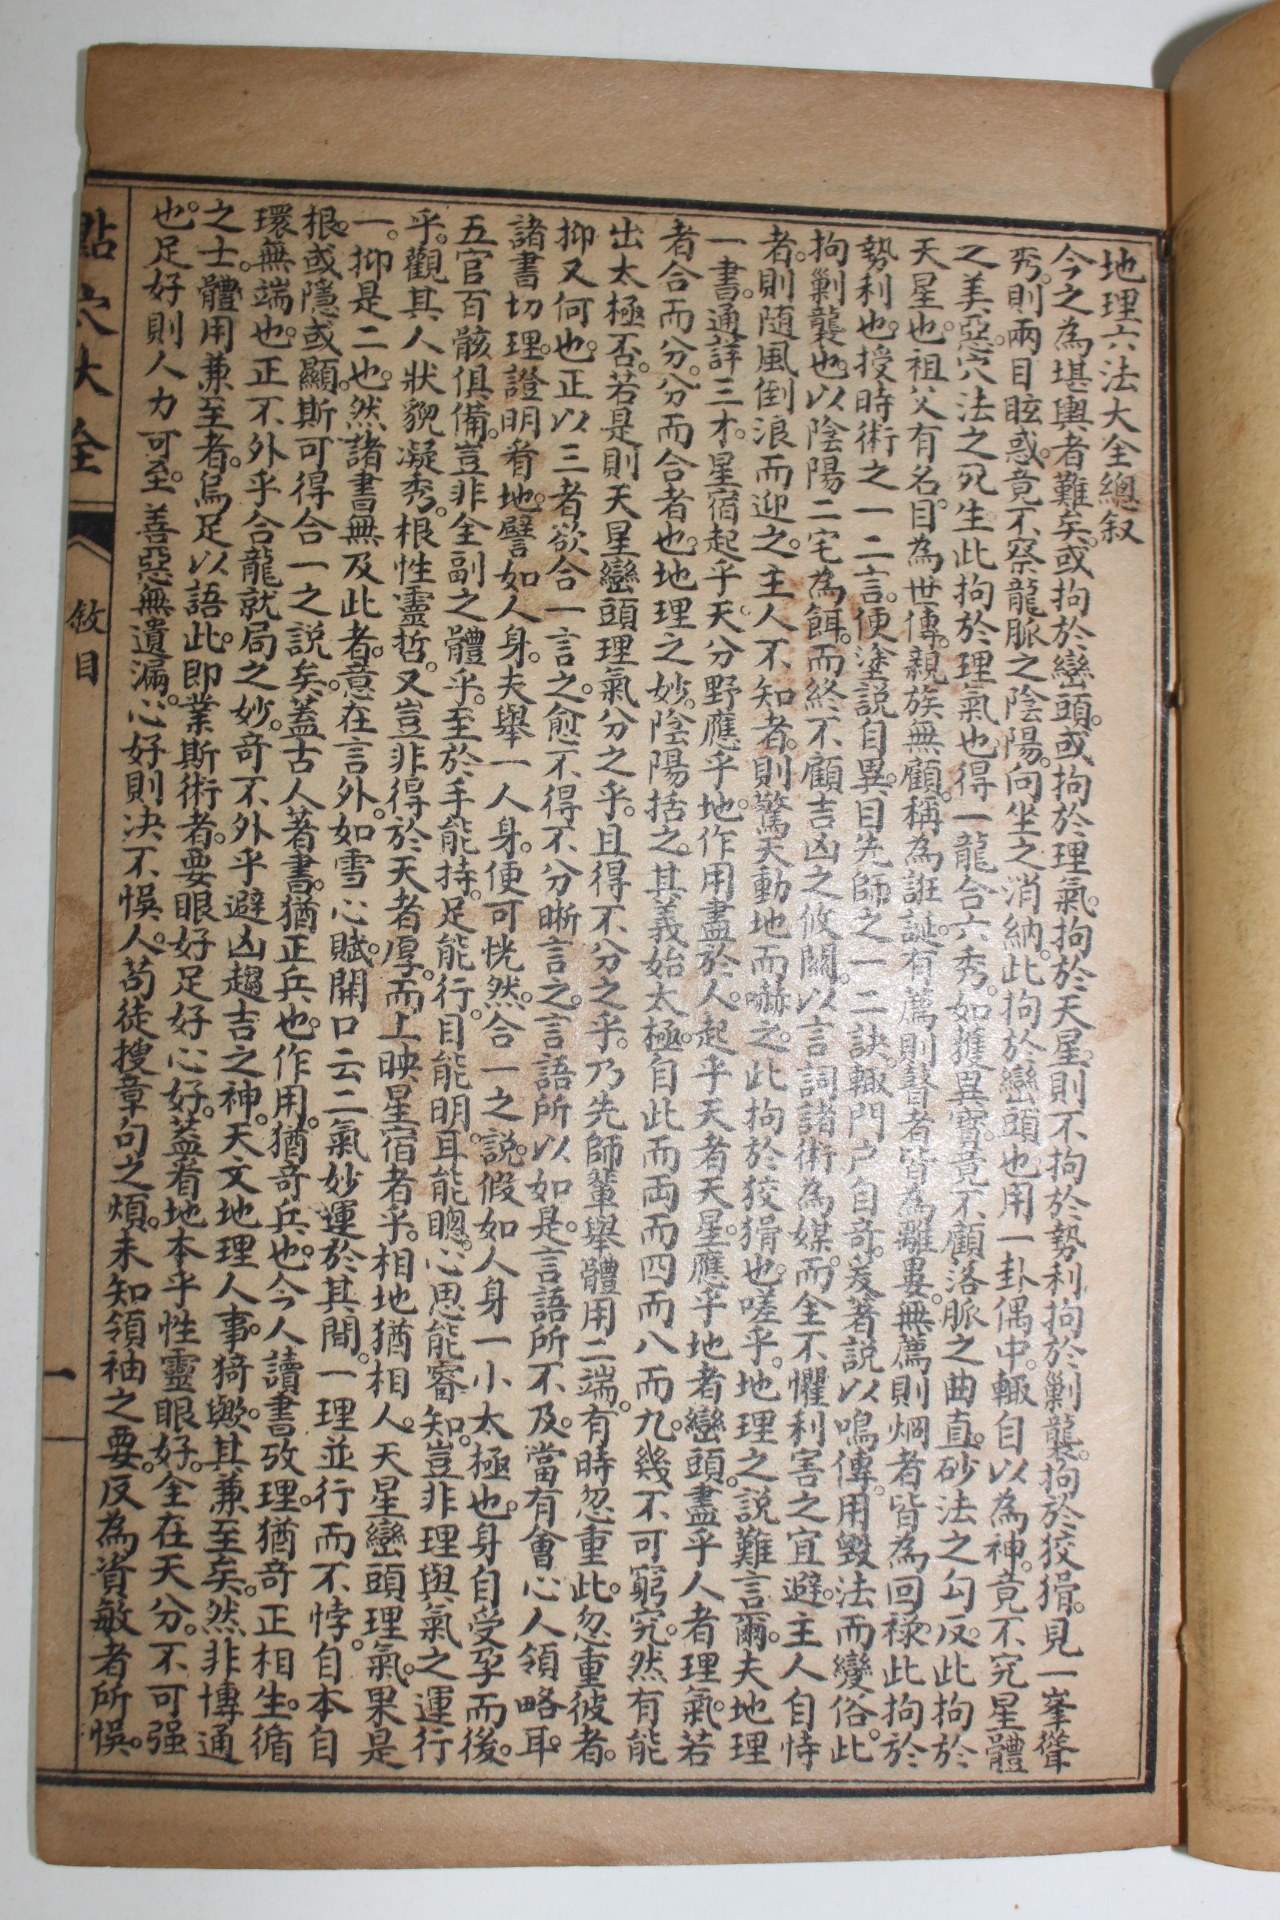 地理六法大全總叙
今之為堪輿者難矣。或拘於巒頭。或拘於理氣。拘於天星。則不拘於勢利。拘於剿襲。拘於狡猾。見一峯聳
秀。則兩目眩惑。竟不察龍脈之陰陽。向坐之消納。此拘於巒頭也。用一卦偶中。輙自以為神。竟不究星體
之美惡。穴法之死生。此拘於理氣也。得一龍合六秀。如獲異寶。竟不顧落脈之曲直。砂法之勾反。此拘於
天星也。祖父有名。目為世傳。親族無顧。稱為誑誕。有薦則瞽者皆為離婁。無薦則烱者皆為回祿。此拘於
勢利也。授時術之一二言。便塗説自異。目先師之一二訣。輙門户自奇。爰著説以鳴傳。用毀法而變俗。此
拘剿襲也。以陰陽二宅為餌。而終不顧吉凶之攸關。以言詞諸術為媒。而全不懼利害之宜避。主人自恃
者。則随風倒浪而迎之。主人不知者。則驚天動地而嚇之。此拘於狡猾也。嗟乎。地理之説難言爾。夫地理
一書。通詳三才。星宿起乎天。分野應乎地。作用盡於人。起乎天者天星。應乎地者巒頭。盡乎人者理氣。若
者合而分。分而合者也。地理之妙。陰陽括之。其義始太極。自此而両而四而八而九。幾不可窮究。然有能
出太極否。若是則天星巒頭理氣分之乎。且得不分之乎。乃先師輩舉體用二端。有時忽重此。忽重彼者。
抑又何也。正以三者欲合一言之。愈不得不分晰言之。言語所以如是。言語所不及。當有會心人領略耳。
諸書切理。證明看地。譬如人身。夫舉一人身。便可恍然。合一之説。假如人身一小太極也。身自受孕而後。
五官百骸俱備。豈非全副之體乎。至於手能持。足能行。目能明。耳能聰。心思能睿知。豈非理與氣之運行
乎。觀其人狀貌凝秀。根性靈哲。又豈非得於天者厚。而上映星宿者乎。相地猶相人。天星巒頭理氣。果是
一。抑是二也。然諸書無及此者。意在言外。如雪心賦。開口云二氣妙運於其間。一理並行而不悖。自本自
根。或隱或顯。斯可得合一之説矣。蓋古人著書。猶正兵也。作用。猶奇兵也。今人讀書攷理。猶奇正相生。循
環無端也。正不外乎合龍就局之妙。奇不外乎避凶趨吉之神。天文地理人事。猗歟。其兼至矣。然非博通
之士。體用兼至者。烏足以語此。即業斯術者。要眼好足好心好。蓋看地本乎性靈。眼好。全在天分。不可强
也。足好則人力可至。善惡無遺漏。心好則决不悞。人苟徒搜章句之煩。未知領袖之要。反為資敏者所悞。
點穴大全
敘目
一